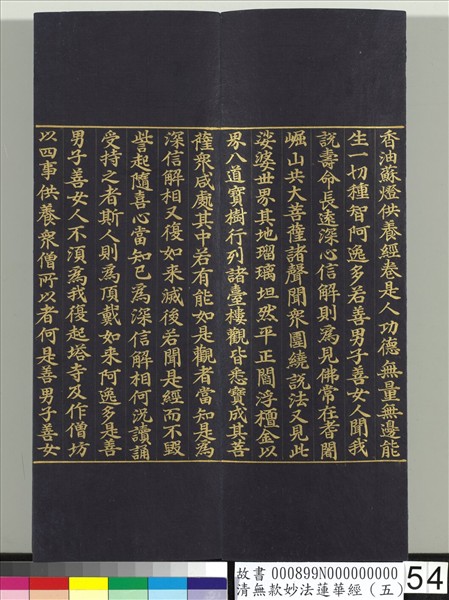 香油蘇燈供養經卷是人功德無量無邊能
生一切種智阿逸多若善男子善女人聞我
說壽命長遠深心信解則為見佛常在耆闍
崛山共大菩薩諸聲聞衆圍繞說法又見此
娑婆世界其地瑠璃坦然平正閻浮檀金以
界八道寶樹行列諸臺樓觀皆悉寶成其菩
薩衆咸處其中若有能如是觀者當知是為
深信解相又復如來滅後若聞是經而不毀
訾起隨喜心當知已為深信解相何況讀誦
受持之者斯人則為頂戴如來阿逸多是善
男子善女人不須為我復起塔寺及作僧坊
以四事供養衆僧所以者何是善男子善女
故書 000899N000000000
清無款妙法蓮華經（五）
54